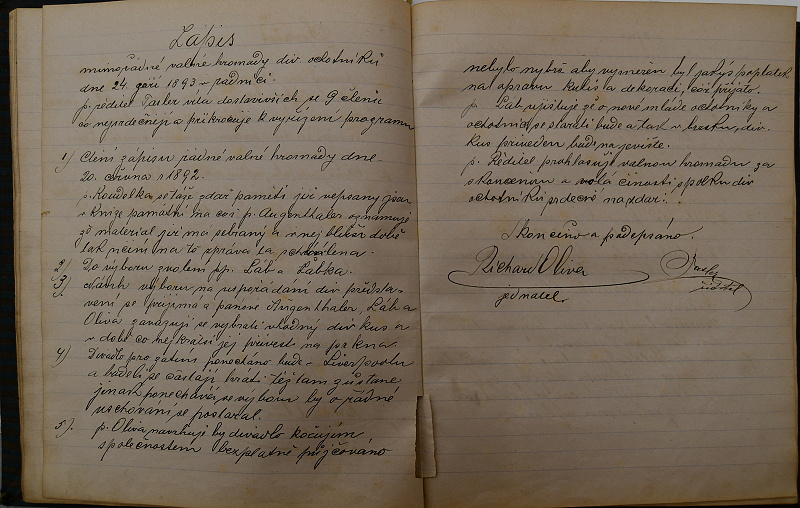 Zápis
mimořádné valné hromady div. ochotníků
dne 24. září 1893 v radnici.
p. ředitel Tasler vítá dostavivších se 9 členů
co nejsrdečněji a přikračuje k vyřízení programu
1) Čtení zápisu řádné valné hromady dne
20. června 1892.
p. Koudelka se táže zdař paměti již vepsány jsou
v knize pamětní na což p. Augenthaler oznamuje
že materiál již má sebraný a v nej bližší době
tak učiní na to zpráva ta schválena.
2) Do výboru zvoleni pp. Láb a Lábka.
3) Návrh výboru na uspořádání div. předsta-
vení se přijímá a pánové Augenthaler, Láb a
Oliva zavazují se vybrati vhodný div. kus a
v době co nejkratší jej přivésti na prkna.
4) Divadlo pro zatím ponecháno bude v Liverpoolu
a bude-li se častěji hráti též tam zůstane
jinak ponechává se výboru by o řádné
uschování se postaral.
5) p. Oliva navrhuje by divadlo kočujícím
společnostem bezplatně půjčováno
nebylo nýbrž aby vyměřen byl jakýs poplatek
na opravu kulis a dekorací, což přijato.
p. Láb ujišťuje že o nové mladé ochotníky a
ochotnice se starati bude a tak v krátku div.
kus přiveden bude na jeviště.
p. Ředitel prohlašuje valnou hromadu za
skončenou a volá činosti spolku div.
ochotníků srdečné na zdar!
Skončeno a podepsáno.
Richard Oliva
jednatel.
Tasler
ředitel